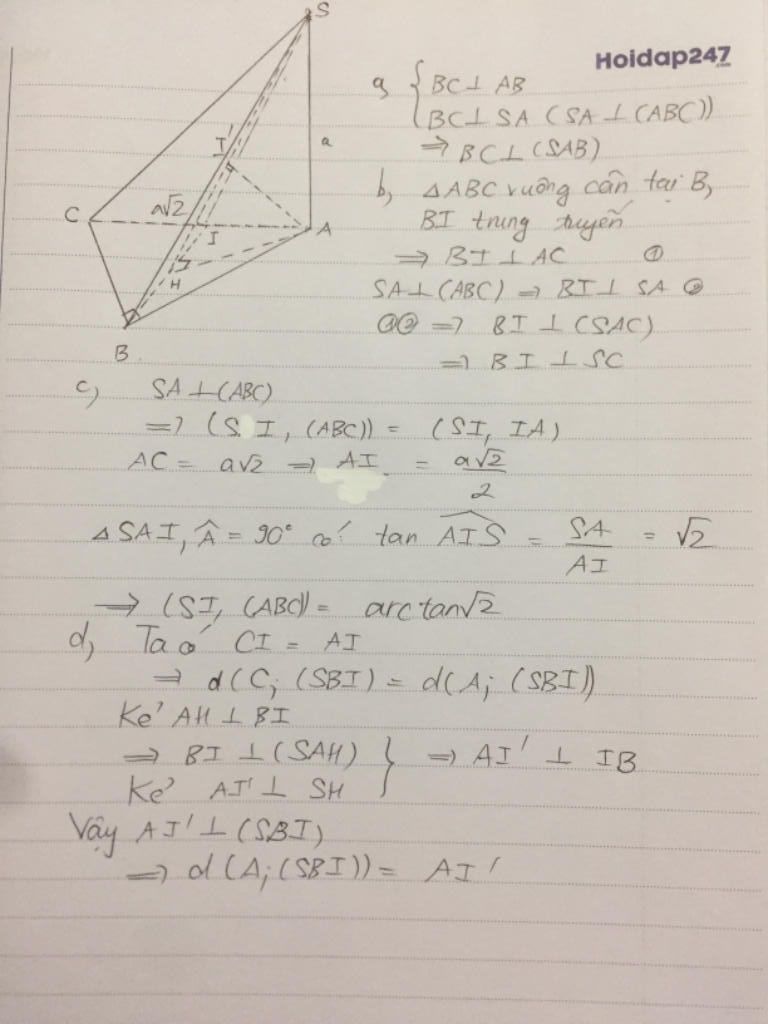 S
Hoidap247
.com
a, { BC ⊥ AB
BC ⊥ SA (SA ⊥ (ABC))
⇒ BC ⊥ (SAB)
I'
a
b, ΔABC vuông cân tại B,
C
a√2
I
A
BI trung tuyến
⇒ BI ⊥ AC ①
H
SA ⊥ (ABC) ⇒ BI ⊥ SA ②
①② ⇒ BI ⊥ (SAC)
B
⇒ BI ⊥ SC
c, SA ⊥ (ABC)
⇒ (SI, (ABC)) = (SI, IA)
AC = a√2 ⇒ AI = a√2/2
ΔSAI, Â = 90° có tan AIS = SA/AI = √2
⇒ (SI, (ABC)) = arctan√2
d, Ta có CI = AI
⇒ d(C; (SBI) = d(A; (SBI))
Kẻ AH ⊥ BI
⇒ BI ⊥ (SAH) } ⇒ AI' ⊥ IB
Kẻ AI' ⊥ SH
Vậy AI' ⊥ (SBI)
⇒ d(A; (SBI)) = AI'